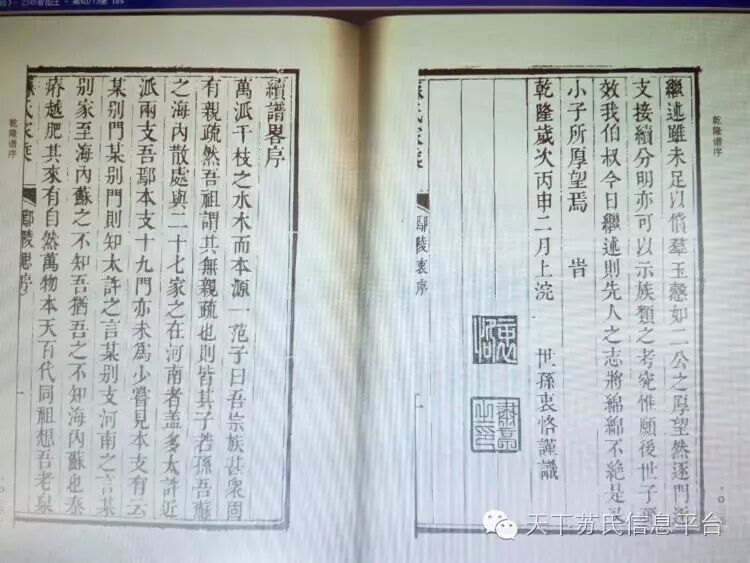 乾隆谱序
繼述雖未足以償羣玉慤如二公之厚望然逐門
支接續分明亦可以示族類之考究惟願後世子
效我伯叔今日繼述則先人之志將綿綿不絶是
小子所厚望焉 旹
乾隆歲次丙申二月上浣 世孫衷恪謹識
鄢陵衷序 一
續譜畧序
萬派千枝之水木而本源一范子曰吾宗族甚衆固
有親疏然吾祖謂其無親疏也則皆其子若孫吾蘇
之海內散處與二十七家之在河南者盖多太許近
派兩支吾鄢本支十九門亦未為少嘗見本支有云
某别門某别門則知太許之言某别支河南之言某
别家至海內蘇之不知吾猶吾之不知海內蘇也秦
瘠越肥其來有自然萬物本天百代同祖想吾老泉
氏家
鄢陵思序 一
乾隆谱序
天下苏氏信息平台